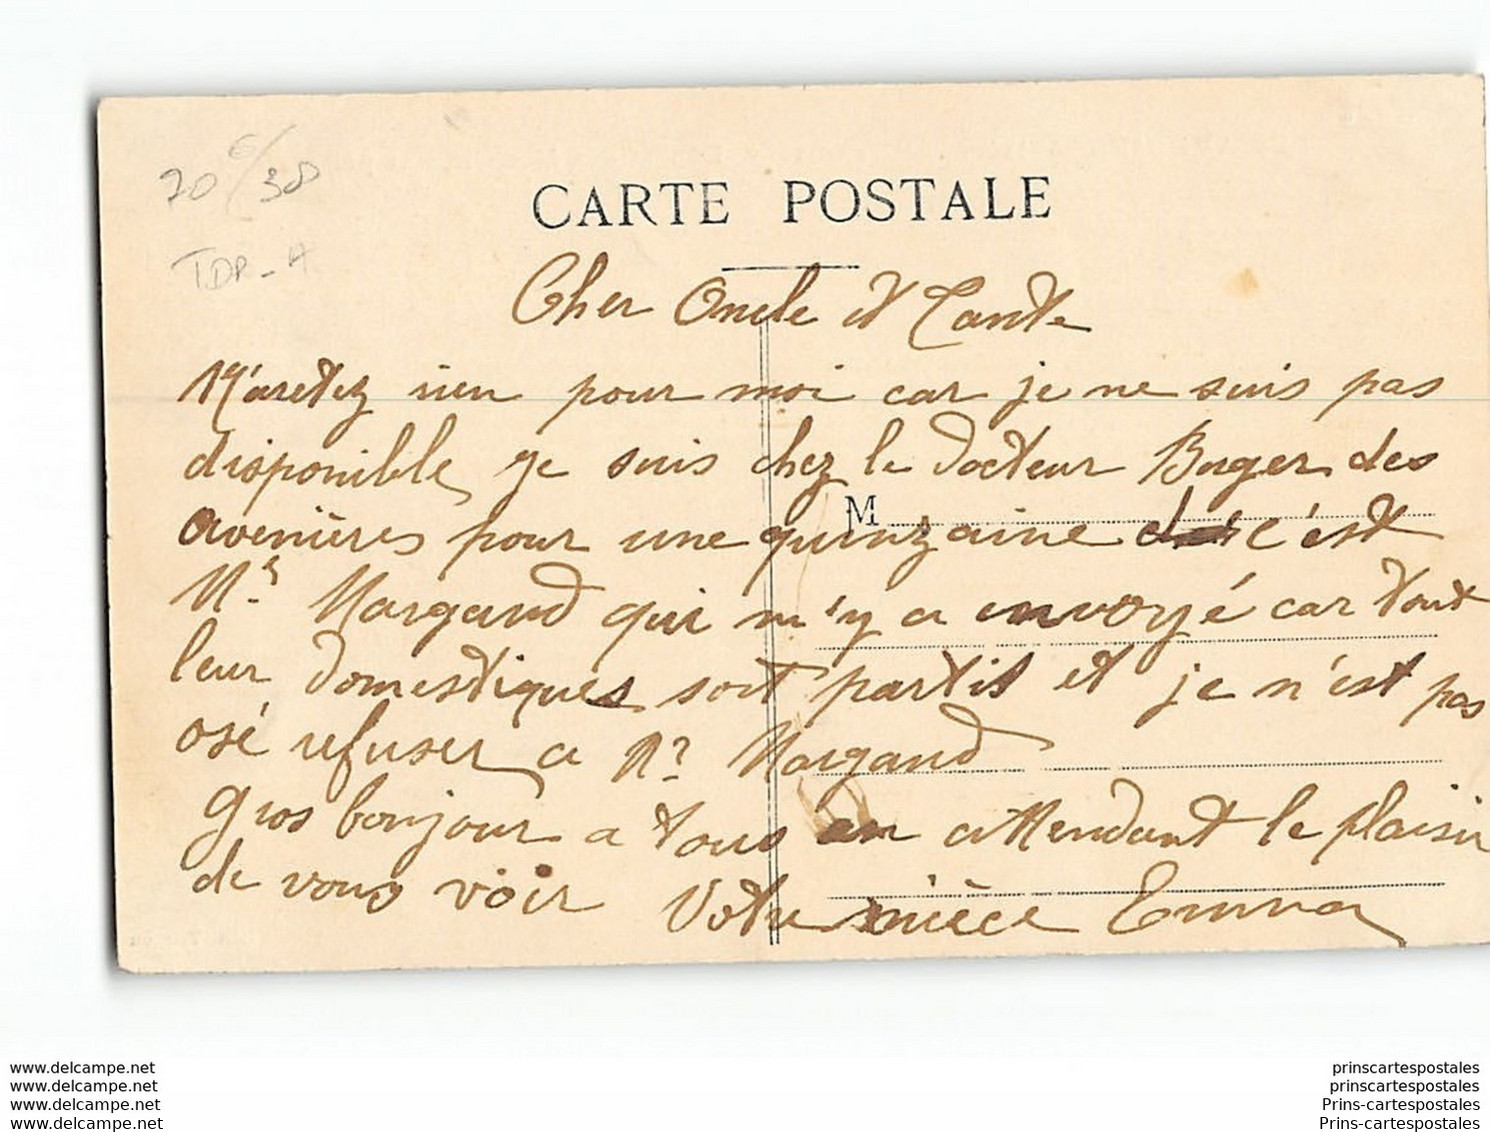 20 6/38
TDP-A
CARTE POSTALE
Cher Oncle et Tante
N'aretez rien pour moi car je ne suis pas
disponible, je suis chez le docteur Boyer des
avenières pour une quinzaine c'est
M
Mr Margand qui m'y a envoyé car tout
leur domestiques soit partis et je n'est pas
osé refuser a Mr Margand
Gros bonjour a tous en attendant le plaisir
de vous voir Votre nièce Emma
www.delcampe.net
www.delcampe.net
www.delcampe.net
www.delcampe.net
prinscartespostales
prinscartespostales
Prins-cartespostales
Prins-cartespostales